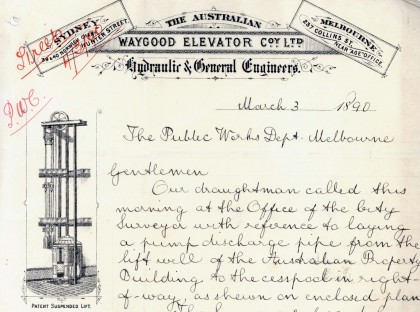 THE AUSTRALIAN
WAYGOOD ELEVATOR COY. LTD.
Hydraulic & General Engineers.
SYDNEY
HUNTER STREET.
MELBOURNE
COLLINS ST.
NEAR AGE-OFFICE.
March 3 1890
The Public Works Dept. Melbourne
Gentlemen
Our draughtman called this
morning at the Office of the City
Surveyor with reference to laying
a pump discharge pipe from the
lift well of the Australian Property
Building to the cesspool in right
of-way, as shewn on enclosed plan
PATENT SUSPENDED LIFT.